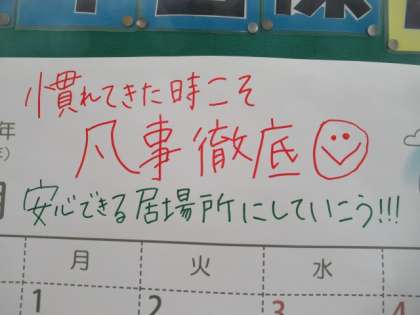 慣れてきた時こそ
年
凡事徹底
安心できる居場所にしていこう!!!
月
火
水
1
2
3
4